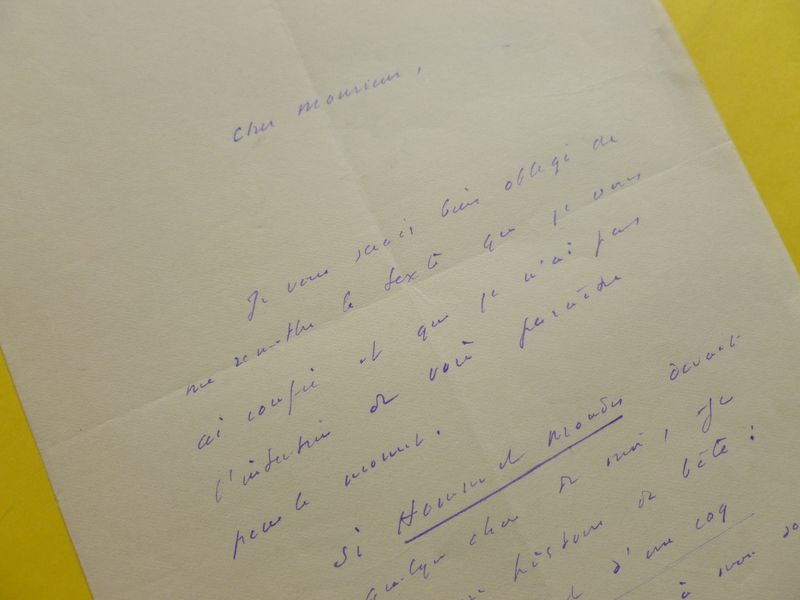 Cher Monsieur,
Je vous serais bien obligé de
me remettre le texte que je vous
ai confié et que je n'ai pas
l'intention de voir paraître
pour le moment.
Si Hommes et Mondes devait
quelque chose de moi, Je
histoire de bête :
d'une coq
à mon